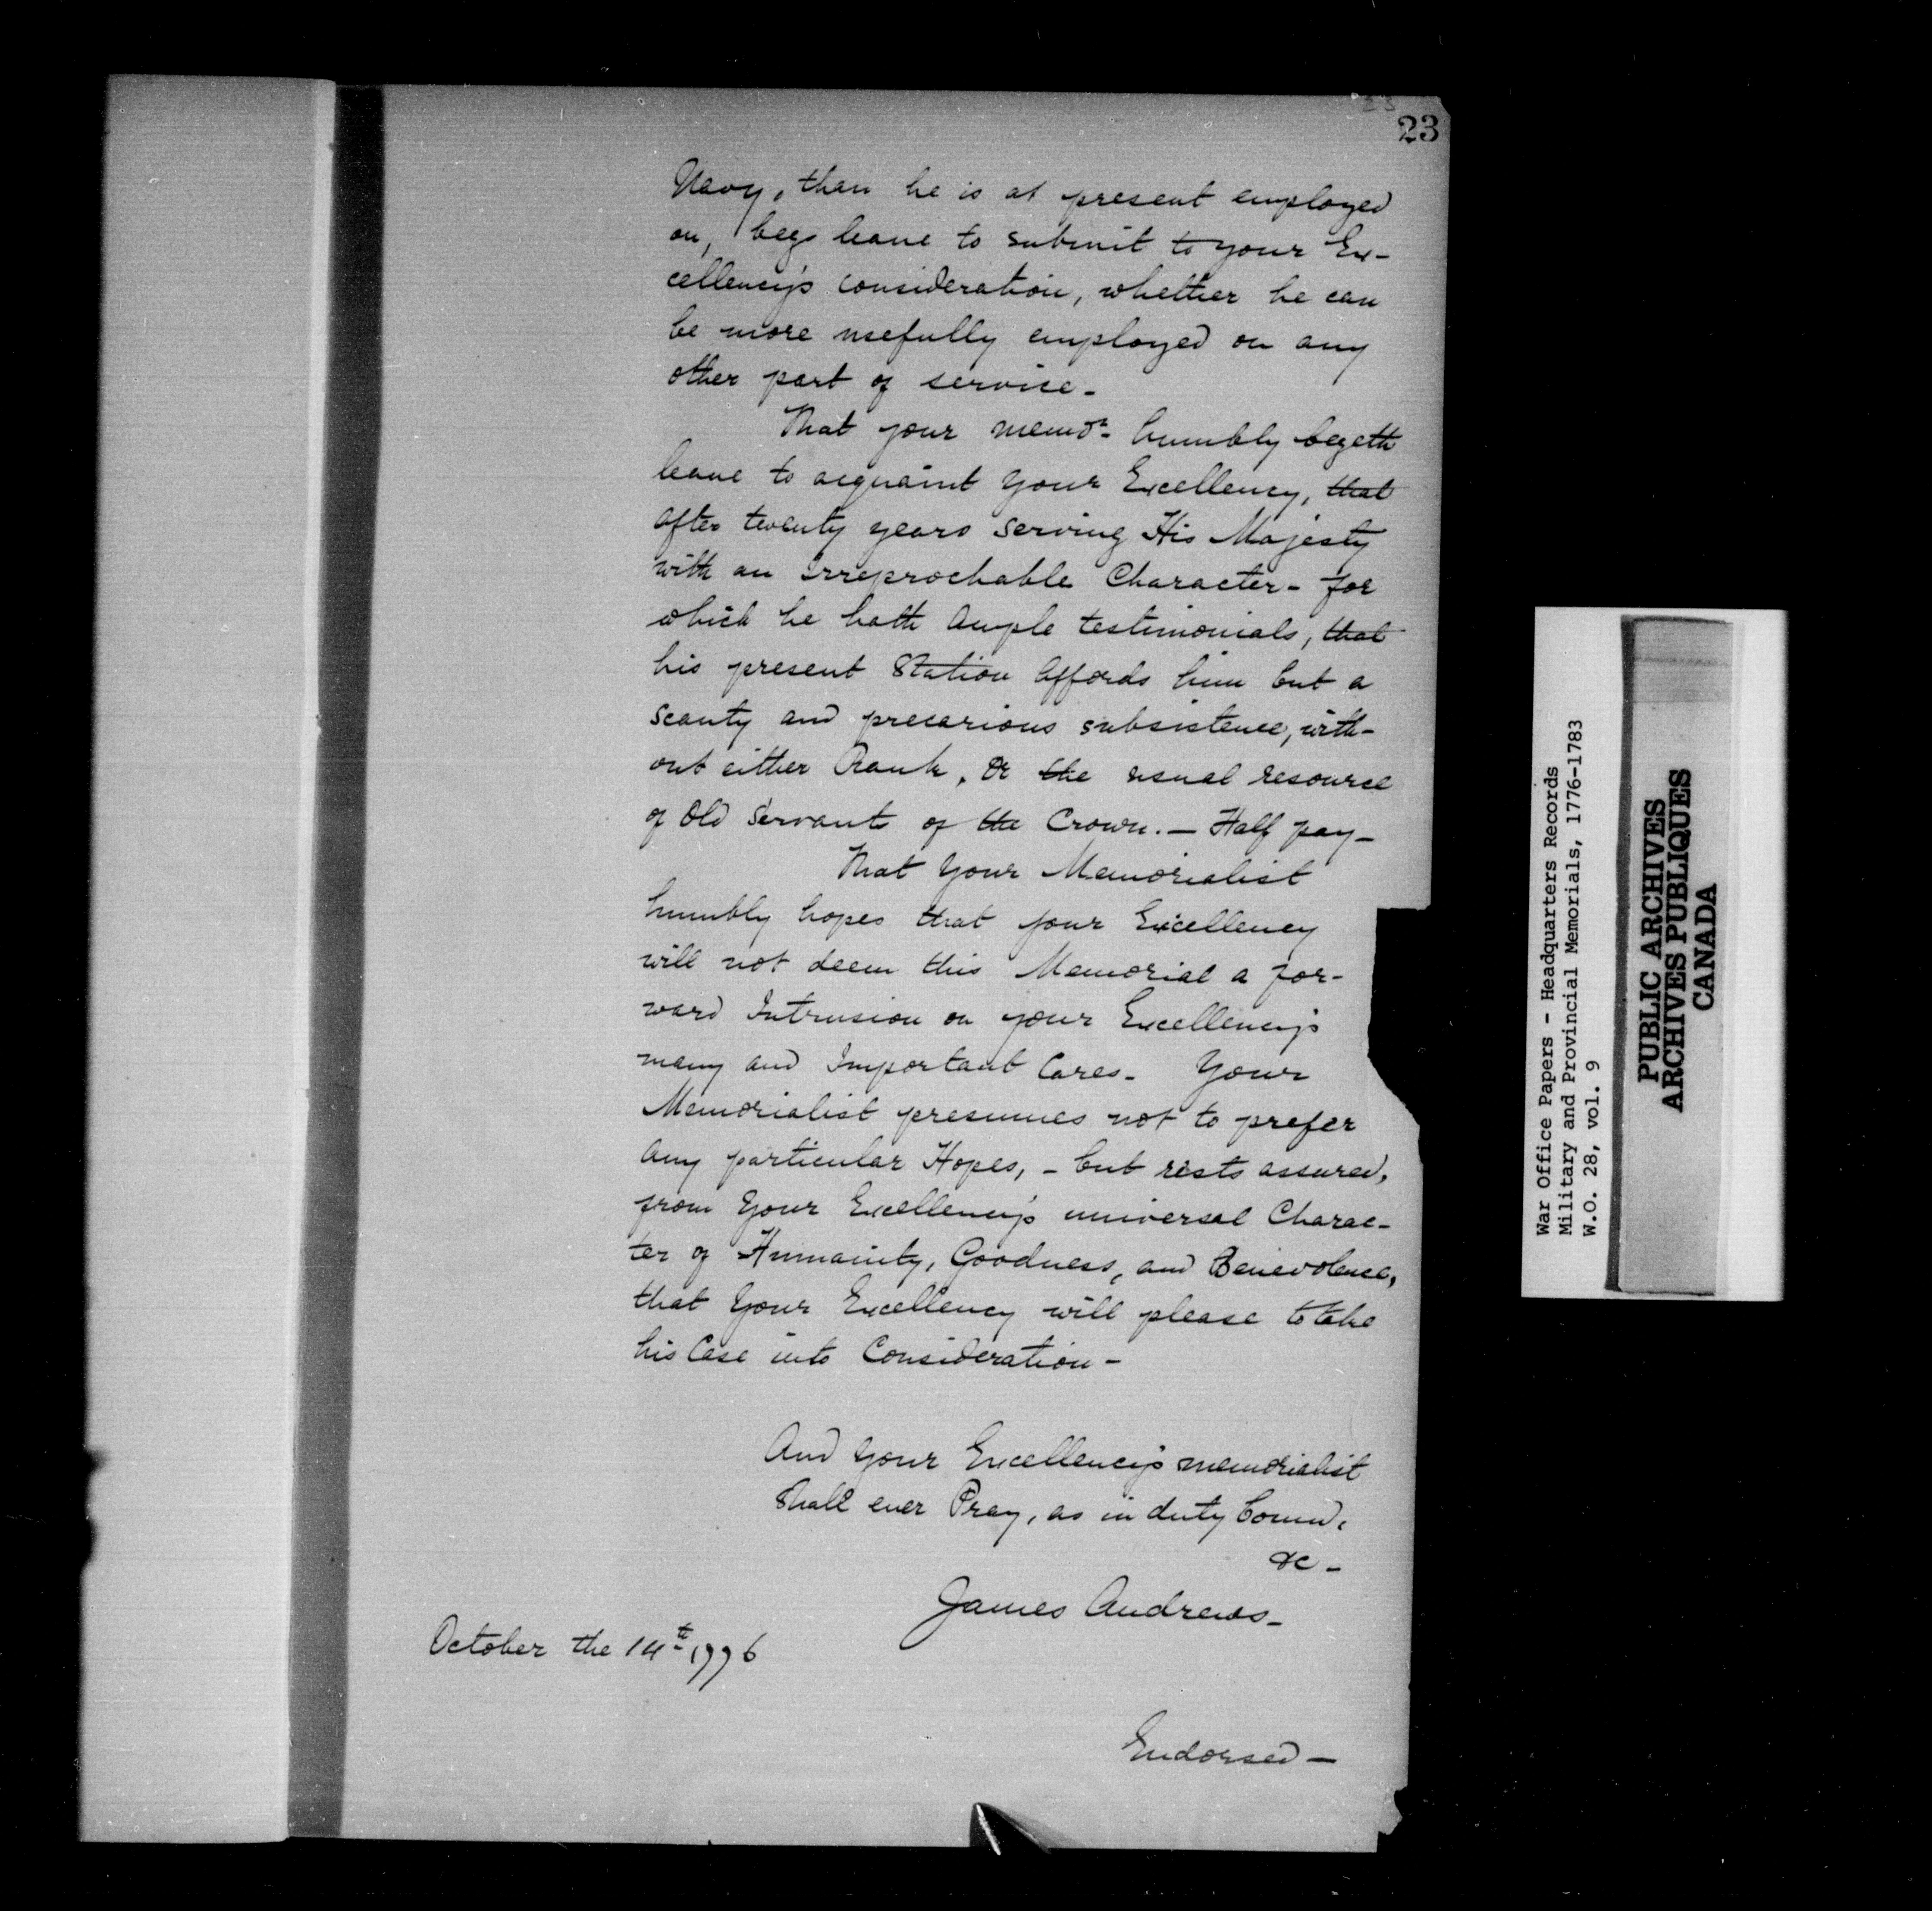 23
Navy, than he is at present employed
on, begs leave to submit to your Ex-
cellency's consideration, whether he can
be more usefully employed on any
other part of service -
That your memo.r humbly begeth
leave to acquaint Your Excellency, that
after twenty years serving His Majesty
with an irreprochable Character - for
which he hath Ample testimonials, that
his present Station affords him but a
scanty and precarious subsistence, with-
out either Rank, Or the usual resource
of Old Servants of the Crown. - Half pay -
That Your Memorialist
humbly hopes that your Excellency
will not deem this Memorial a for-
ward Intrusion on your Excellency's
many and Important Cares - Your
Memorialist presumes not to prefer
Any particular Hopes, - but rests assured,
from Your Excellency's universal Charac-
ter of Humainty, Goodness, and Benevolence,
that Your Excellency will please to take
his Case into Consideration -
And Your Excellency's memorialist
Shall ever Pray, as in duty bound,
&c -
James Andrews -
October the 14th 1776
Endorsed -
War Office Papers - Headquarters Records
Military and Provincial Memorials, 1776-1783
W.O. 28, vol. 9
PUBLIC ARCHIVES
ARCHIVES PUBLIQUES
CANADA